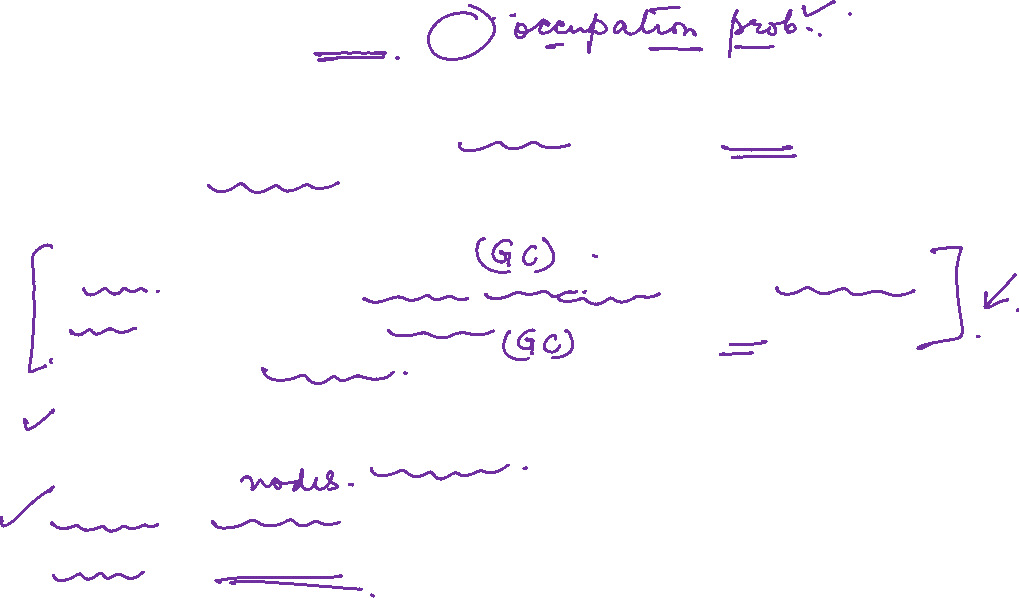 occupation prob.
(GC)
(GC)
nodes.